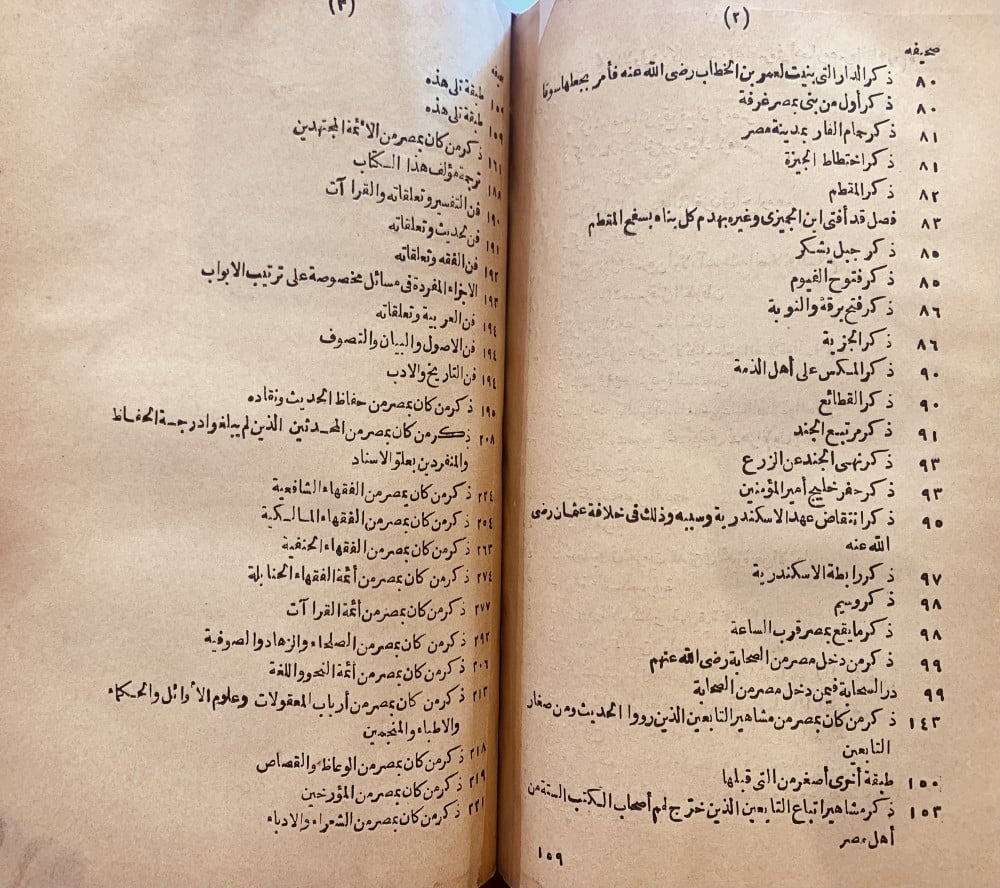 (٢)
صحيفه
٨٠ ذكر الدار التى بنيت لعمر بن الخطاب رضى الله عنه فأمر بجعلها سوقا
٨٠ ذكر أول من بنى بمصر غرفة
٨١ ذكر حمام الفار بمدينة مصر
٨١ ذكر اختطاط الجيزة
٨٢ ذكر المقطم
٨٣ فصل قد أفتى ابن الجميزى وغيره بهدم كل بناء بسفح المقطم
٨٥ ذكر جبل يشكر
٨٥ ذكر فتوح الفيوم
٨٦ ذكر فتح برقة والنوبة
٨٦ ذكر الجزية
٩٠ ذكر المكس على أهل الذمة
٩٠ ذكر القطائع
٩١ ذكر مرتبع الجند
٩٣ ذكر نهى الجند عن الزرع
٩٣ ذكر حفر خليج أمير المؤمنين
٩٥ ذكر انتقاض عهد الاسكندرية وسببه وذلك فى خلافة عثمان رضى
الله عنه
٩٧ ذكر رابطة الاسكندرية
٩٨ ذكر وسيم
٩٨ ذكر ما يقع بمصر قرب الساعة
٩٩ ذكر من دخل مصر من الصحابة رضى الله عنهم
٩٩ در السحابة فيمن دخل مصر من الصحابة
١٤٣ ذكر من كان بمصر من مشاهير التابعين الذين رووا الحديث ومن صغار
التابعين
١٥٠ طبقة أخرى أصغر من التى قبلها
١٥٣ ذكر مشاهير اتباع التابعين الذين خرّج لهم أصحاب الكتب الستة من
أهل مصر
١٥٩
صحيفه
طبقة تلى هذه
١٥٩ طبقة تلى هذه
١٦١ ذكر من كان بمصر من الأئمة المجتهدين
١٨٨ ترجمة مؤلف هذا الكتاب
١٩٠ فن التفسير وتعلقاته والقراآت
١٩١ فن الحديث وتعلقاته
١٩٢ فن الفقه وتعلقاته
١٩٣ الاجزاء المفردة فى مسائل مخصوصة على ترتيب الابواب
١٩٤ فن العربية وتعلقاته
١٩٤ فن الاصول والبيان والتصوف
١٩٤ فن التاريخ والادب
١٩٥ ذكر من كان بمصر من حفاظ الحديث ونقاده
٢٠٨ ذكر من كان بمصر من المحدثين الذين لم يبلغوا درجة الحفاظ
والمنفردين بعلو الاسناد
٢٢٤ ذكر من كان بمصر من الفقهاء الشافعية
٢٥٤ ذكر من كان بمصر من الفقهاء المالكية
٢٦٣ ذكر من كان بمصر من الفقهاء الحنفية
٢٧٤ ذكر من كان بمصر من أئمة الفقهاء الحنابلة
٢٧٧ ذكر من كان بمصر من أئمة القراآت
٢٩٢ ذكر من كان بمصر من الصلحاء والزهاد والصوفية
٣٠٦ ذكر من كان بمصر من أئمة النحو واللغة
٣١٢ ذكر من كان بمصر من أرباب المعقولات وعلوم الأوائل والحكماء
والاطباء والمنجمين
٣١٨ ذكر من كان بمصر من الوعاظ والقصاص
٣١٩ ذكر من كان بمصر من المؤرخين
٣٢١ ذكر من كان بمصر من الشعراء والادباء